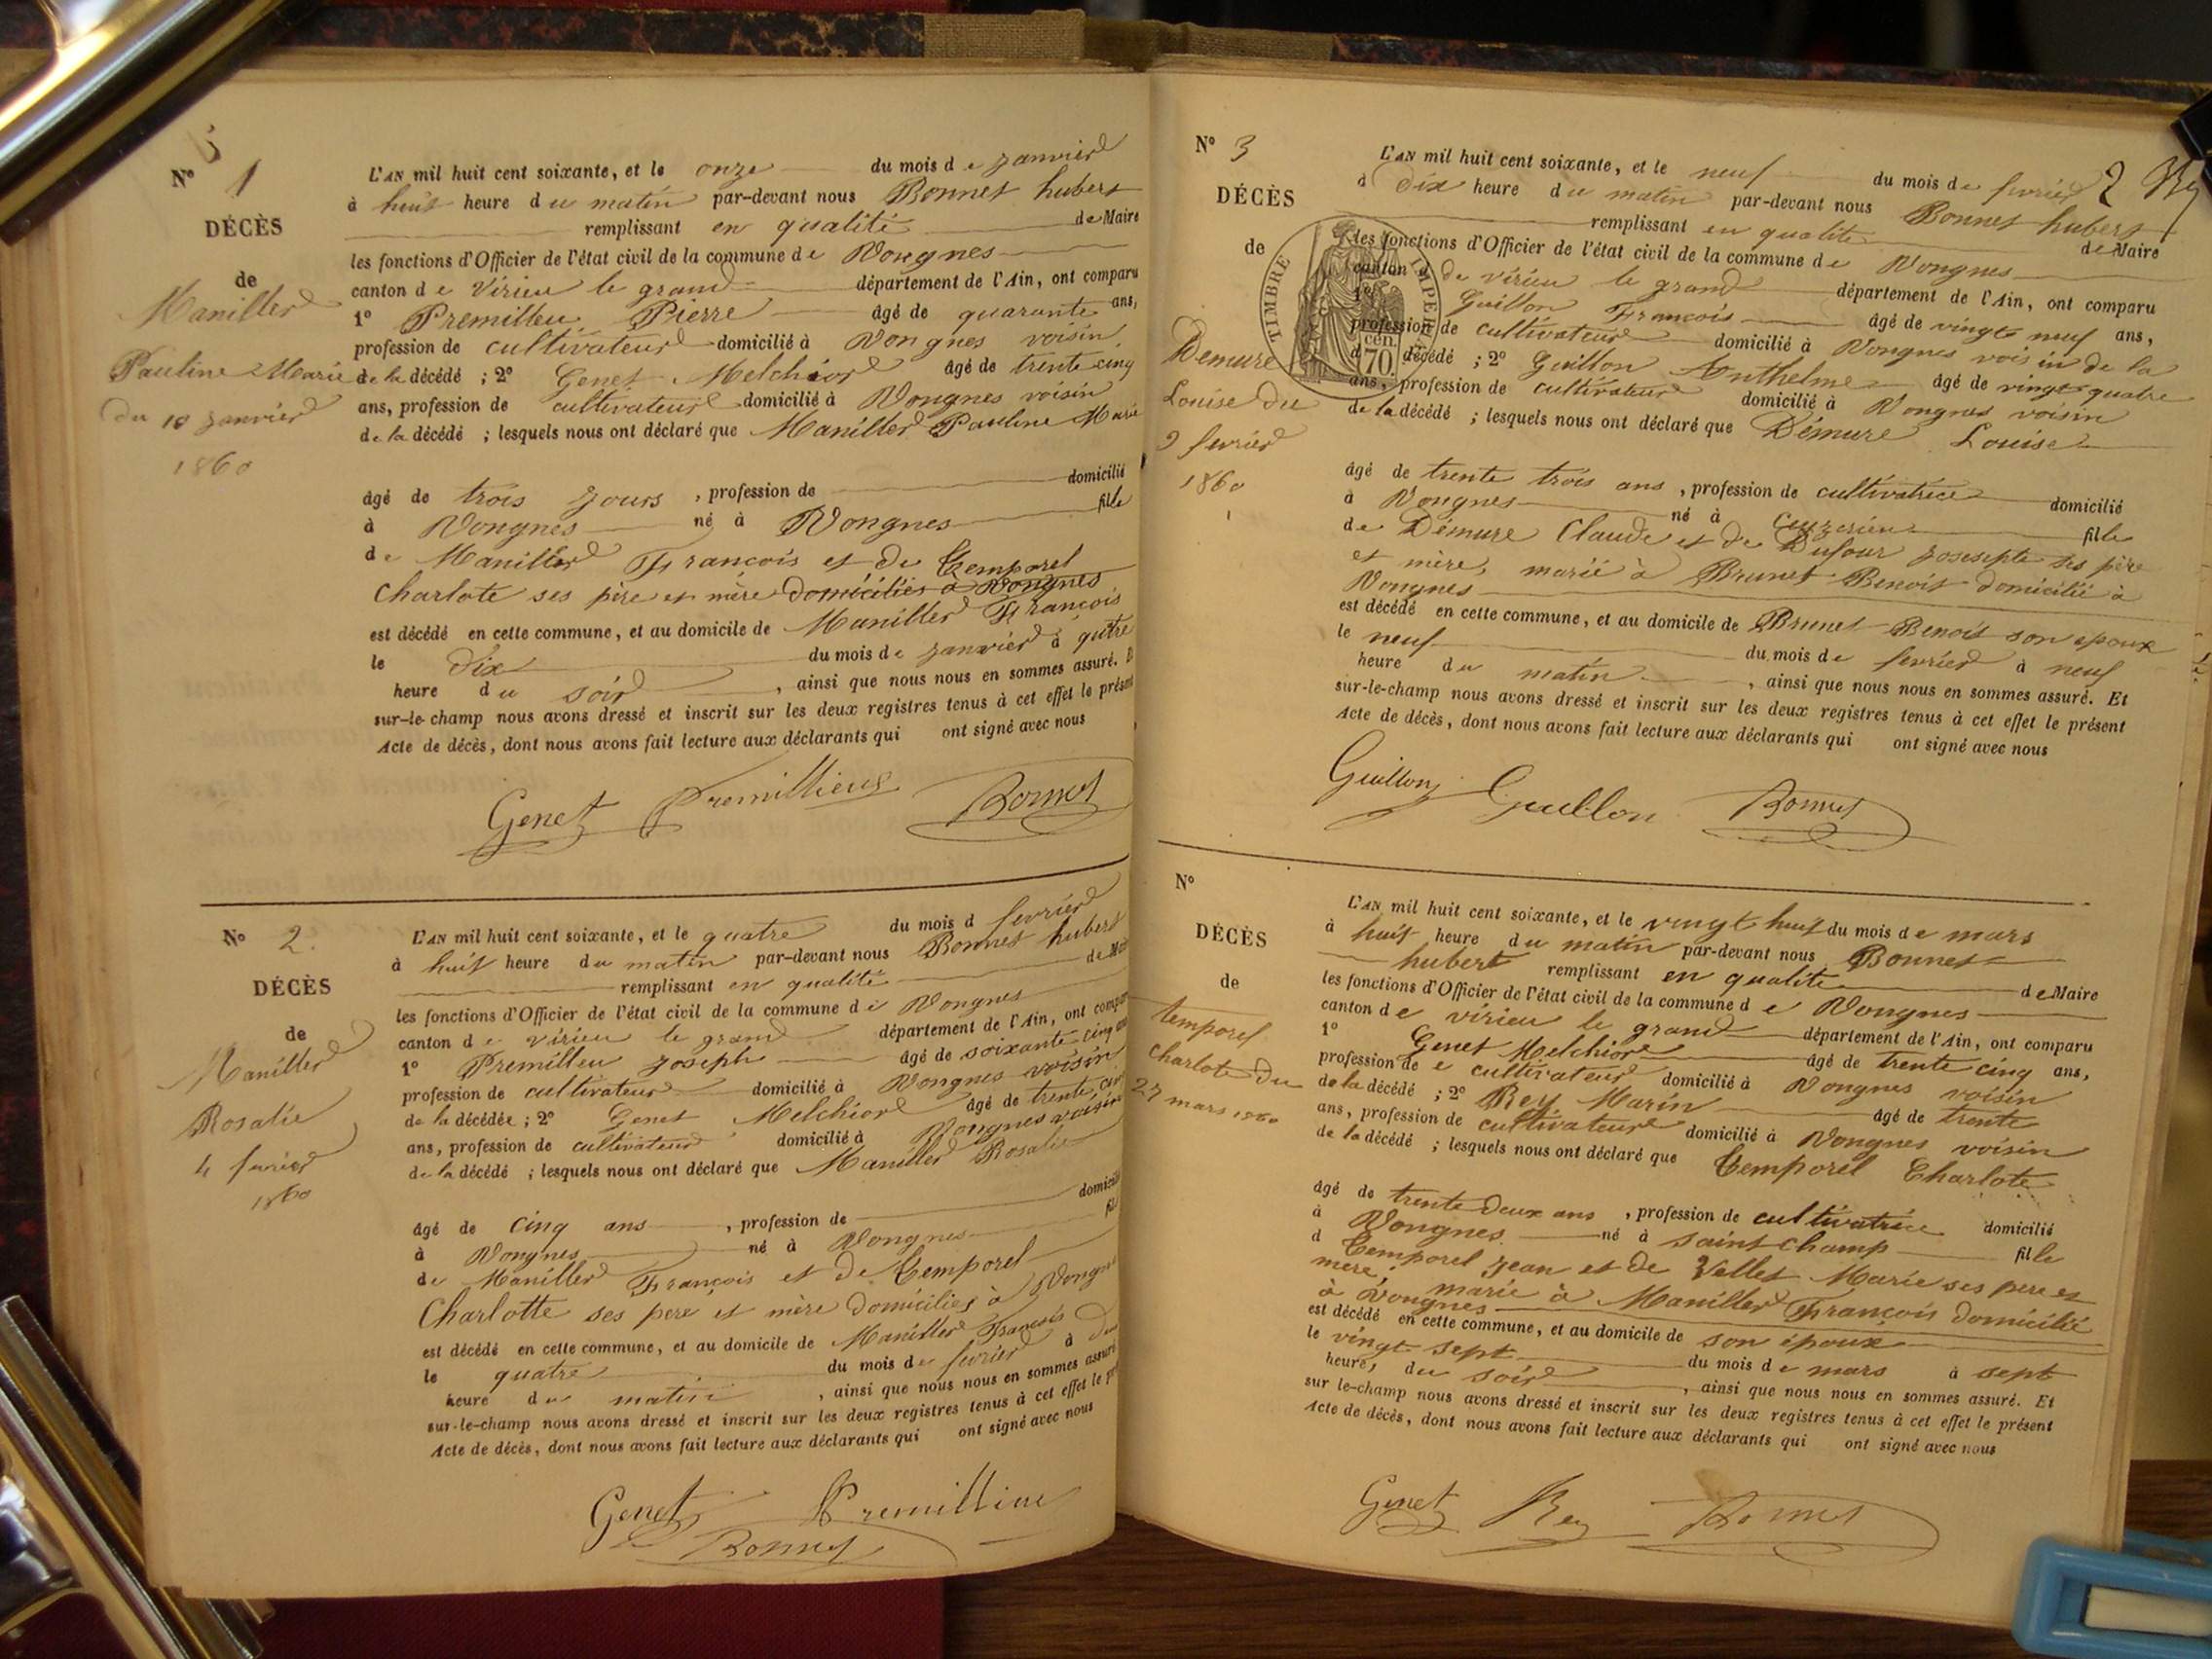 Nº 1
DÉCÈS
de
Maniller
Pauline Marie
du 10 janvier
1860
L'AN mil huit cent soixante, et le onze du mois de janvier
à huit heure du matin par-devant nous Bonnet hubert
remplissant en qualité de Maire
les fonctions d'Officier de l'état civil de la commune de Vongnes
canton de Virieu le grand département de l'Ain, ont comparu
1º Premilleu Pierre âgé de quarante ans,
profession de cultivateur domicilié à Vongnes voisin
de la décédé ; 2º Genet Melchior âgé de trente cinq
ans, profession de cultivateur domicilié à Vongnes voisin
de la décédé ; lesquels nous ont déclaré que Maniller Pauline Marie
âgé de trois jours , profession de domicilié
à Vongnes né à Vongnes fille
de Maniller François et de Temporel
Charlote ses père et mère domiciliés à Vongnes
est décédé en cette commune, et au domicile de Maniller François
le dix du mois de janvier à qutre
heure du soir , ainsi que nous nous en sommes assuré. E
sur-le-champ nous avons dressé et inscrit sur les deux registres tenus à cet effet le présent
Acte de décès, dont nous avons fait lecture aux déclarants qui ont signé avec nous
Genet Premillieux Bonnet
Nº 2.
DÉCÈS
de
Maniller
Rosalie
4 fevrier
1860
L'AN mil huit cent soixante, et le quatre du mois d fevrier
à huit heure du matin par-devant nous Bonnet hubert
remplissant en qualité de Mai
les fonctions d'Officier de l'état civil de la commune de Vongnes
canton de virieu le grand département de l'Ain, ont compar
1º Premilleu joseph âgé de soixante cinq ans
profession de cultivateur domicilié à Vongnes voisin
de la décédée ; 2º Genet Melchior âgé de trente cinq
ans, profession de cultivateur domicilié à Vongnes voisin
de la décédé ; lesquels nous ont déclaré que Maniller Rosalie
âgé de cinq ans , profession de domicilié
à Vongnes né à Vongnes fil
de Maniller François et de Temporel
Charlotte ses pere et mère domiciliés à Vongne
est décédé en cette commune, et au domicile de Maniller François
le quatre du mois de fevrier à
heure du matin , ainsi que nous nous en sommes assuré
sur-le-champ nous avons dressé et inscrit sur les deux registres tenus à cet effet le pr
Acte de décès, dont nous avons fait lecture aux déclarants qui ont signé avec nous
Genet Premillieu
Bonnet
Nº 3
DÉCÈS
de
TIMBRE IMPERIAL
70 cen.
Demure
Louise du
9 fevrier
1860
2
L'AN mil huit cent soixante, et le neuf du mois de fevrier
à dix heure du matin par-devant nous Bonnet hubert
remplissant en qualité de Maire
les fonctions d'Officier de l'état civil de la commune de Vongnes
canton de virieu le grand département de l'Ain, ont comparu
1º Guillon François âgé de vingt neuf ans,
profession de cultivateur domicilié à Vongnes voisin de la
décédé ; 2º Guillon Anthelme âgé de vingt quatre
ans, profession de cultivateur domicilié à Vongnes voisin
de la décédé ; lesquels nous ont déclaré que Démure Louise
âgé de trente trois ans , profession de cultivatrice domicilié
à Vongnes né à Ceyzerieu fille
de Démure Claude et de Dufour josesepte ses père
et mère, marié à Brunet Benoit domicilié à
Vongnes
est décédé en cette commune, et au domicile de Brunet Benoit son epoux
le neuf du mois de fevrier à neuf
heure du matin , ainsi que nous nous en sommes assuré. Et
sur-le-champ nous avons dressé et inscrit sur les deux registres tenus à cet effet le présent
Acte de décès, dont nous avons fait lecture aux déclarants qui ont signé avec nous
Guillon Guillon Bonnet
Nº
DÉCÈS
de
temporel
charlote du
27 mars 1860
L'AN mil huit cent soixante, et le vingt huit du mois de mars
à huit heure du matin par-devant nous Bonnet
hubert remplissant en qualité de Maire
les fonctions d'Officier de l'état civil de la commune de Vongnes
canton de virieu le grand département de l'Ain, ont comparu
1º Genet Melchior âgé de trente cinq ans,
profession de cultivateur domicilié à Vongnes voisin
de la décédé ; 2º Rey Marin âgé de trente
ans, profession de cultivateur domicilié à Vongnes voisin
de la décédé ; lesquels nous ont déclaré que Temporel Charlote
âgé de trente deux ans , profession de cultivatrice domicilié
à Vongnes né à saint champ fille
d Temporel jean et de Vellet Marie ses pere et
mere, marié à Maniller François domicilié
à Vongnes
est décédé en cette commune, et au domicile de son époux
le vingt sept du mois de mars à sept
heure, du soir , ainsi que nous nous en sommes assuré. Et
sur le-champ nous avons dressé et inscrit sur les deux registres tenus à cet effet le présent
Acte de décès, dont nous avons fait lecture aux déclarants qui ont signé avec nous
Genet Rey Bonnet